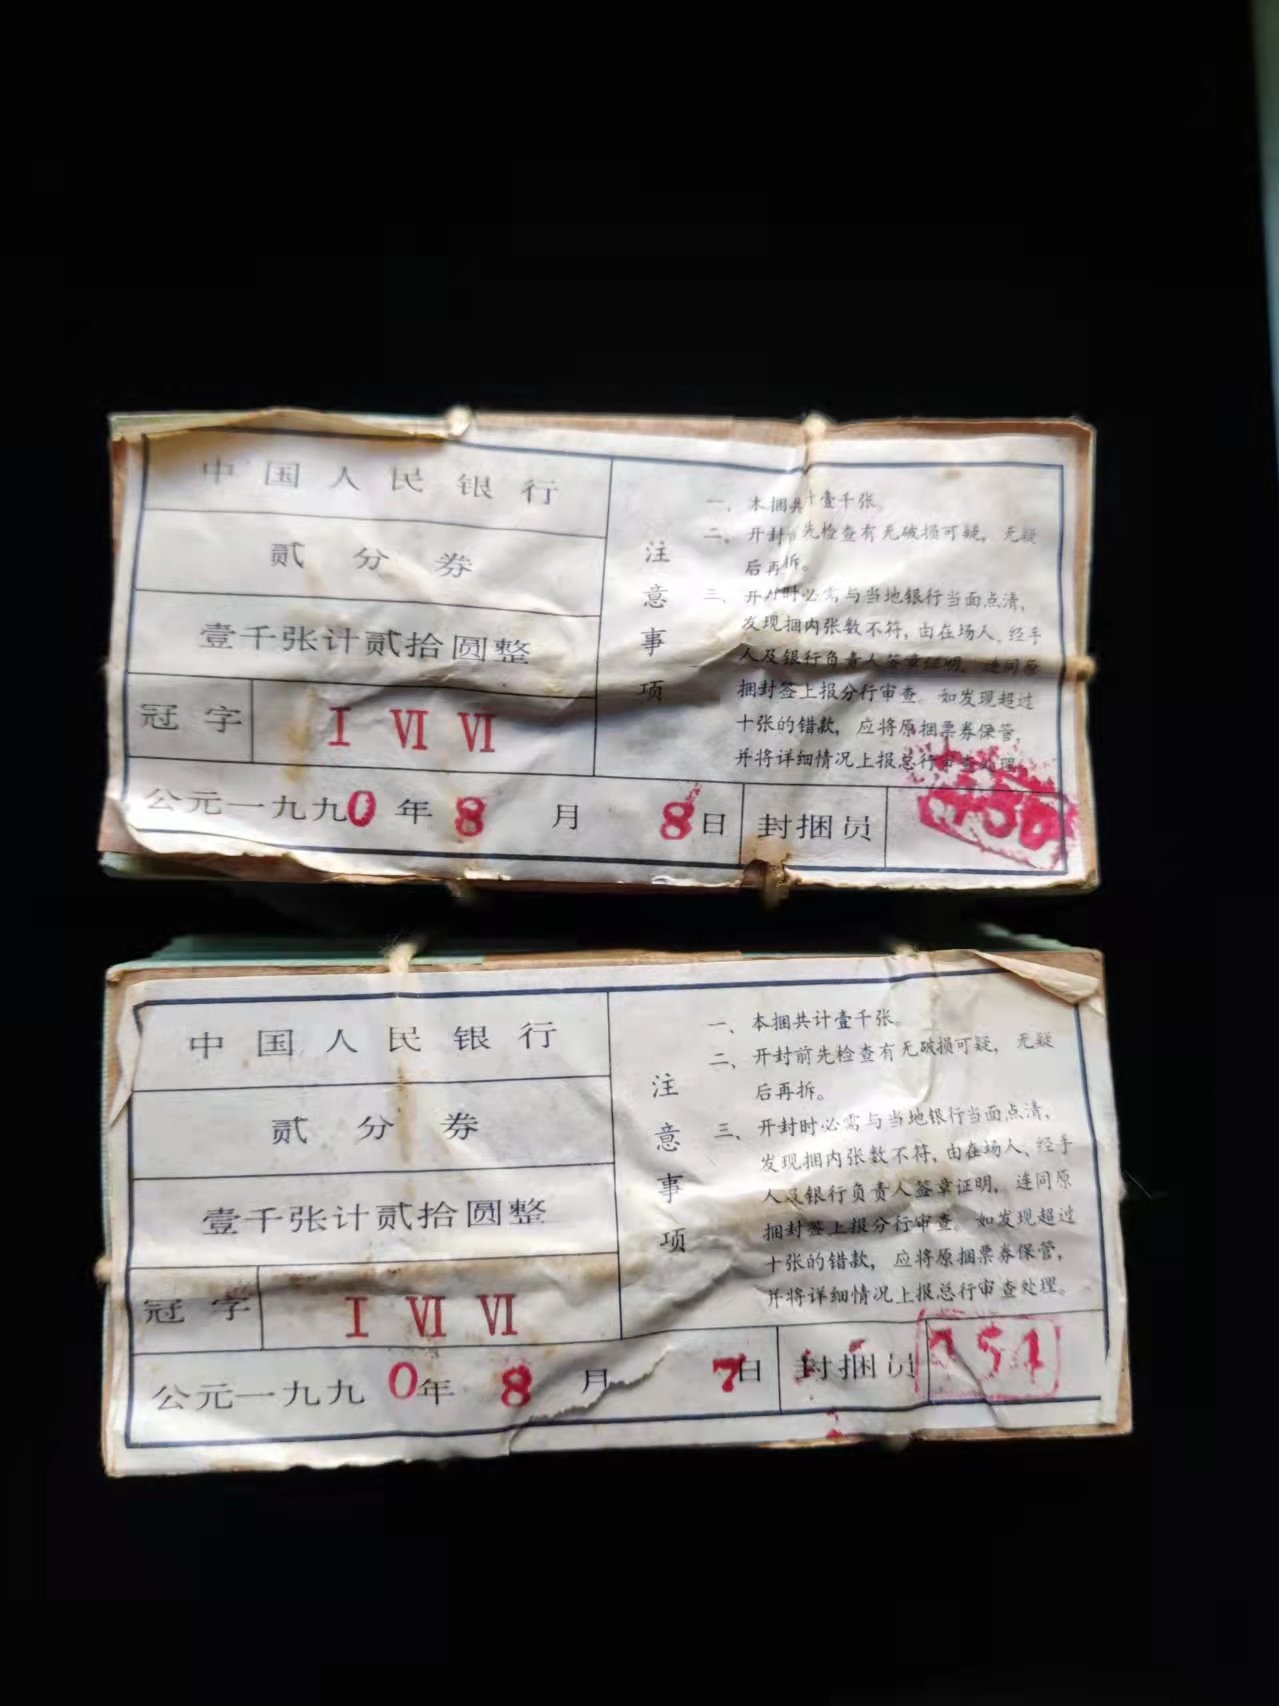 中国人民银行
贰分券
壹千张计贰拾圆整
冠字 I VI VI
公元一九九0年8月8日 封捆员
注意事项
一、本捆共计壹千张。
二、开封前先检查有无破损可疑，无疑
后再拆。
三、开封时必需与当地银行当面点清，
发现捆内张数不符，由在场人、经手
人及银行负责人签章证明，连同原
捆封签上报分行审查。如发现超过
十张的错款，应将原捆票券保管，
并将详细情况上报总行审查处理。
中国人民银行
贰分券
壹千张计贰拾圆整
冠字 I VI VI
公元一九九0年8月7日 封捆员 351
注意事项
一、本捆共计壹千张。
二、开封前先检查有无破损可疑，无疑
后再拆。
三、开封时必需与当地银行当面点清，
发现捆内张数不符，由在场人、经手
人及银行负责人签章证明，连同原
捆封签上报分行审查。如发现超过
十张的错款，应将原捆票券保管，
并将详细情况上报总行审查处理。